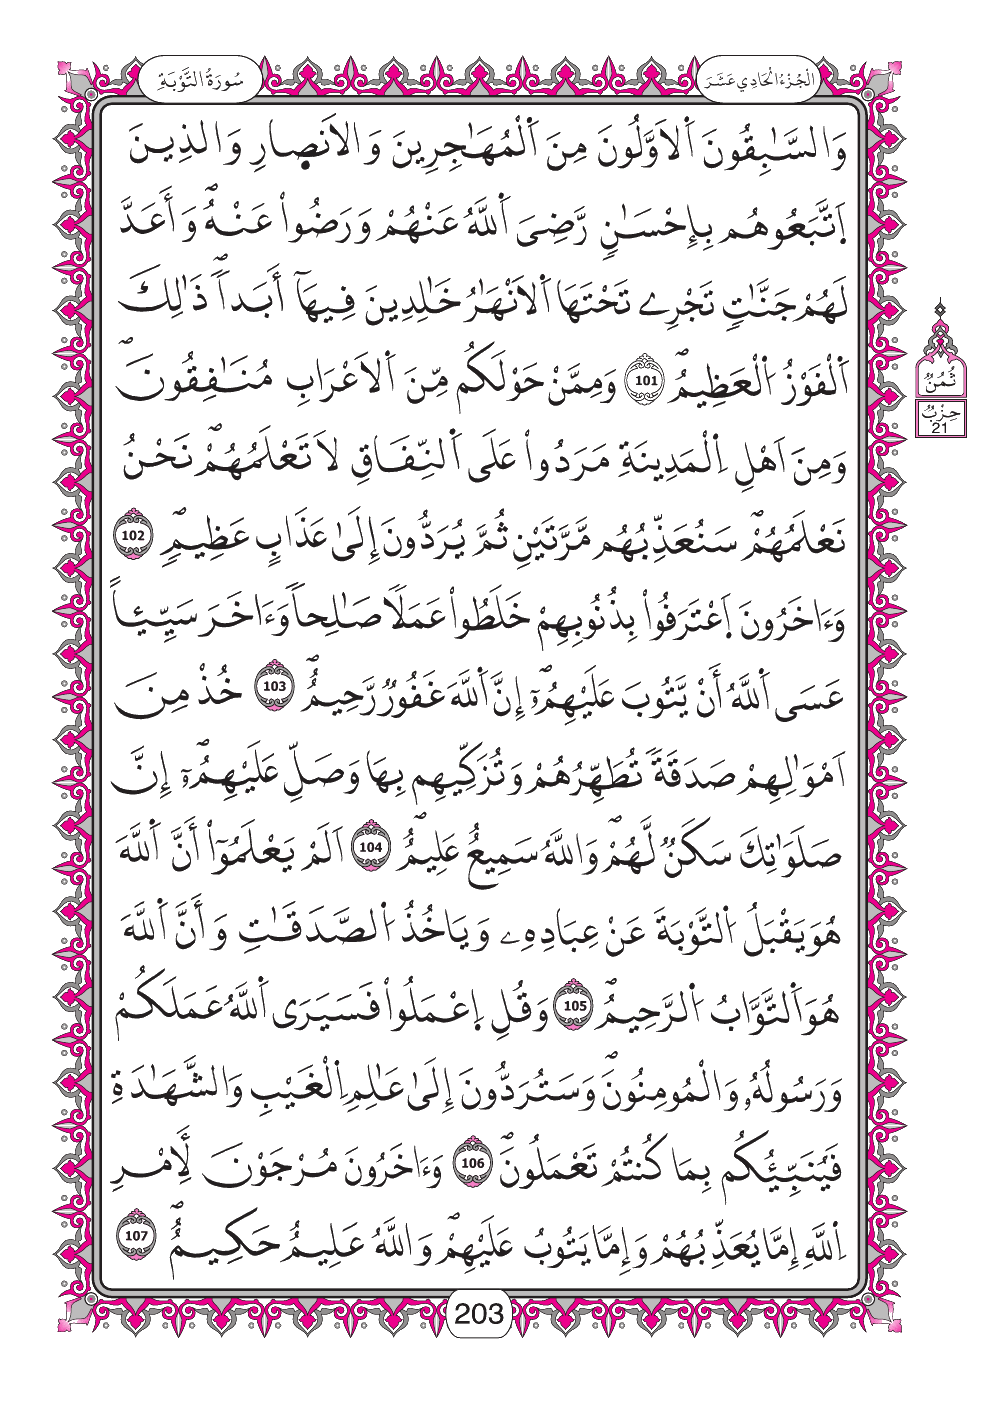 الْجُزْءُ الْحَادِي عَشَرَ
سُورَةُ التَّوْبَةِ
وَالسَّٰبِقُونَ اَ۬لَاوَّلُونَ مِنَ اَ۬لْمُهَٰجِرِينَ وَالَانص۪ارِ وَالذِينَ
اَ۪تَّبَعُوهُم بِإِحْسَٰنٖ رَّضِيَ اَ۬للَّهُ عَنْهُمْ وَرَضُواْ عَنْهُۖ وَأَعَدَّ
لَهُمْ جَنَّٰتٖ تَجْرِے تَحْتَهَا اَ۬لَانْهَٰرُ خَٰلِدِينَ فِيهَآ أَبَداٗۖ ذَٰلِكَ
اَ۬لْفَوْزُ اُ۬لْعَظِيمُۖ 101 وَمِمَّنْ حَوْلَكُم مِّنَ اَ۬لَاعْرَابِ مُنَٰفِقُونَۖ
وَمِنَ اَهْلِ اِ۬لْمَدِينَةِ مَرَدُواْ عَلَى اَ۬لنِّفَاقِ لَا تَعْلَمُهُمْۖ نَحْنُ
نَعْلَمُهُمْۖ سَنُعَذِّبُهُم مَّرَّتَيْنِ ثُمَّ يُرَدُّونَ إِلَىٰ عَذَابٍ عَظِيمٖۖ 102
وَءَاخَرُونَ اَ۪عْتَرَفُواْ بِذُنُوبِهِمْ خَلَطُواْ عَمَلاٗ صَٰلِحاٗ وَءَاخَرَ سَيِّئاً
عَسَى اَ۬للَّهُ أَنْ يَّتُوبَ عَلَيْهِمُۥٓۖ إِنَّ اَ۬للَّهَ غَفُورٞ رَّحِيمٌۖ 103 خُذْ مِنَ
اَمْوَٰلِهِمْ صَدَقَةٗ تُطَهِّرُهُمْ وَتُزَكِّيهِم بِهَا وَصَلِّ عَلَيْهِمُۥٓۖ إِنَّ
صَلَوَٰتِكَ سَكَنٞ لَّهُمْۖ وَاللَّهُ سَمِيعٌ عَلِيمٌۖ 104 اَلَمْ يَعْلَمُوٓاْ أَنَّ اَ۬للَّهَ
هُوَ يَقْبَلُ اُ۬لتَّوْبَةَ عَنْ عِبَادِهِۦ وَيَاخُذُ اُ۬لصَّدَقَٰتِ وَأَنَّ اَ۬للَّهَ
هُوَ اَ۬لتَّوَّابُ اُ۬لرَّحِيمُۖ 105 وَقُلِ اِ۪عْمَلُواْ فَسَيَرَى اَ۬للَّهُ عَمَلَكُمْ
وَرَسُولُهُۥ وَالْمُومِنُونَۖ وَسَتُرَدُّونَ إِلَىٰ عَٰلِمِ اِ۬لْغَيْبِ وَالشَّهَٰدَةِ
فَيُنَبِّئُكُم بِمَا كُنتُمْ تَعْمَلُونَۖ 106 وَءَاخَرُونَ مُرْجَوْنَ لِأَمْرِ
اِ۬للَّهِ إِمَّا يُعَذِّبُهُمْ وَإِمَّا يَتُوبُ عَلَيْهِمْۖ وَاللَّهُ عَلِيمٌ حَكِيمٌۖ 107
ثُمُنٌ
حِزْبٌ
21
203